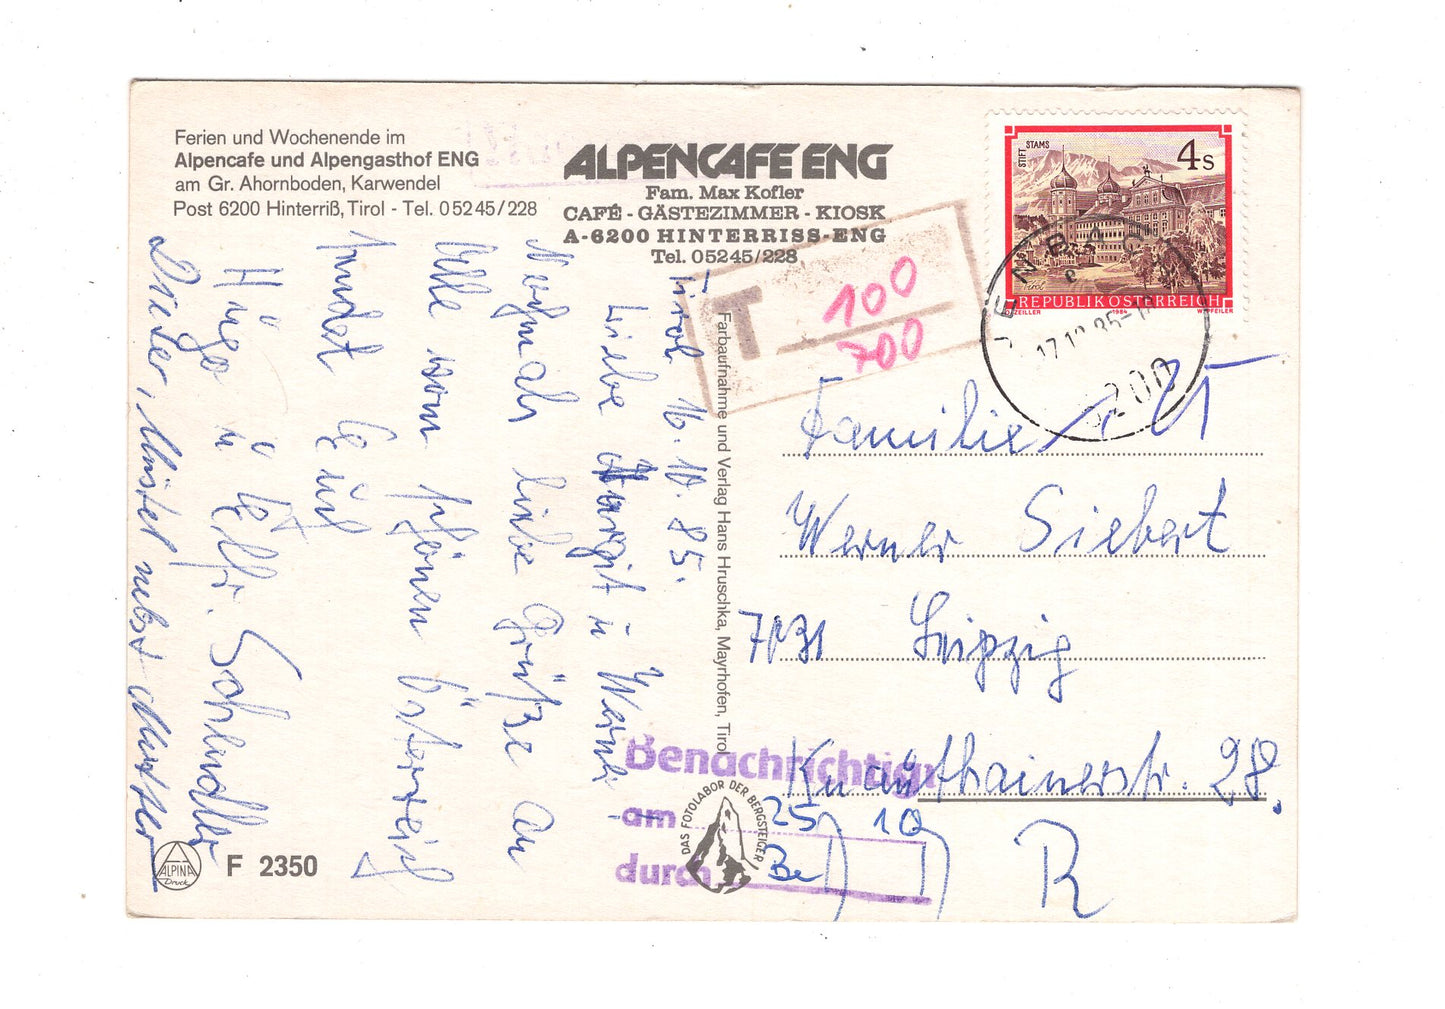 Ferien und Wochenende im
Alpencafe und Alpengasthof ENG
am Gr. Ahornboden, Karwendel
Post 6200 Hinterriß, Tirol - Tel. 05245/228
ALPENCAFE ENG
Fam. Max Kofler
CAFÉ - GÄSTEZIMMER - KIOSK
A-6200 HINTERRISS-ENG
Tel. 05245/228
STIFT STAMS
4 S
Tirol
REPUBLIK ÖSTERREICH
O. ZEILLER 1984 W. PFEILER
JENB
17.10.85
6200
T 100
700
Tirol 16. 10. 85.
Liebe Margit u Werner
Nochmals liebe Grüße an
Alle vom schönen Österreich
sendet Euch
Hugo u Elfr. Schindler
Dieter, nebst Mutter
Farbaufnahme und Verlag Hans Hruschka, Mayrhofen, Tirol
Familie
Werner Siebert
7031 Leipzig
Knauthainerstr. 28.
R
Benachrichtigt
am 25 10
durch Be
DAS FOTOLABOR DER BERGSTEIGER
ALPINA
Druck
F 2350